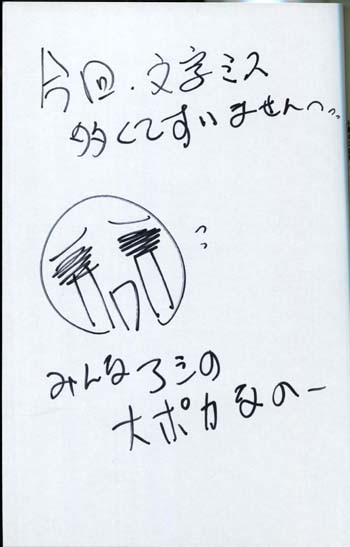 今回、文字ミス
多くてすいませんっ…
みんなろミの
大ポカなのー